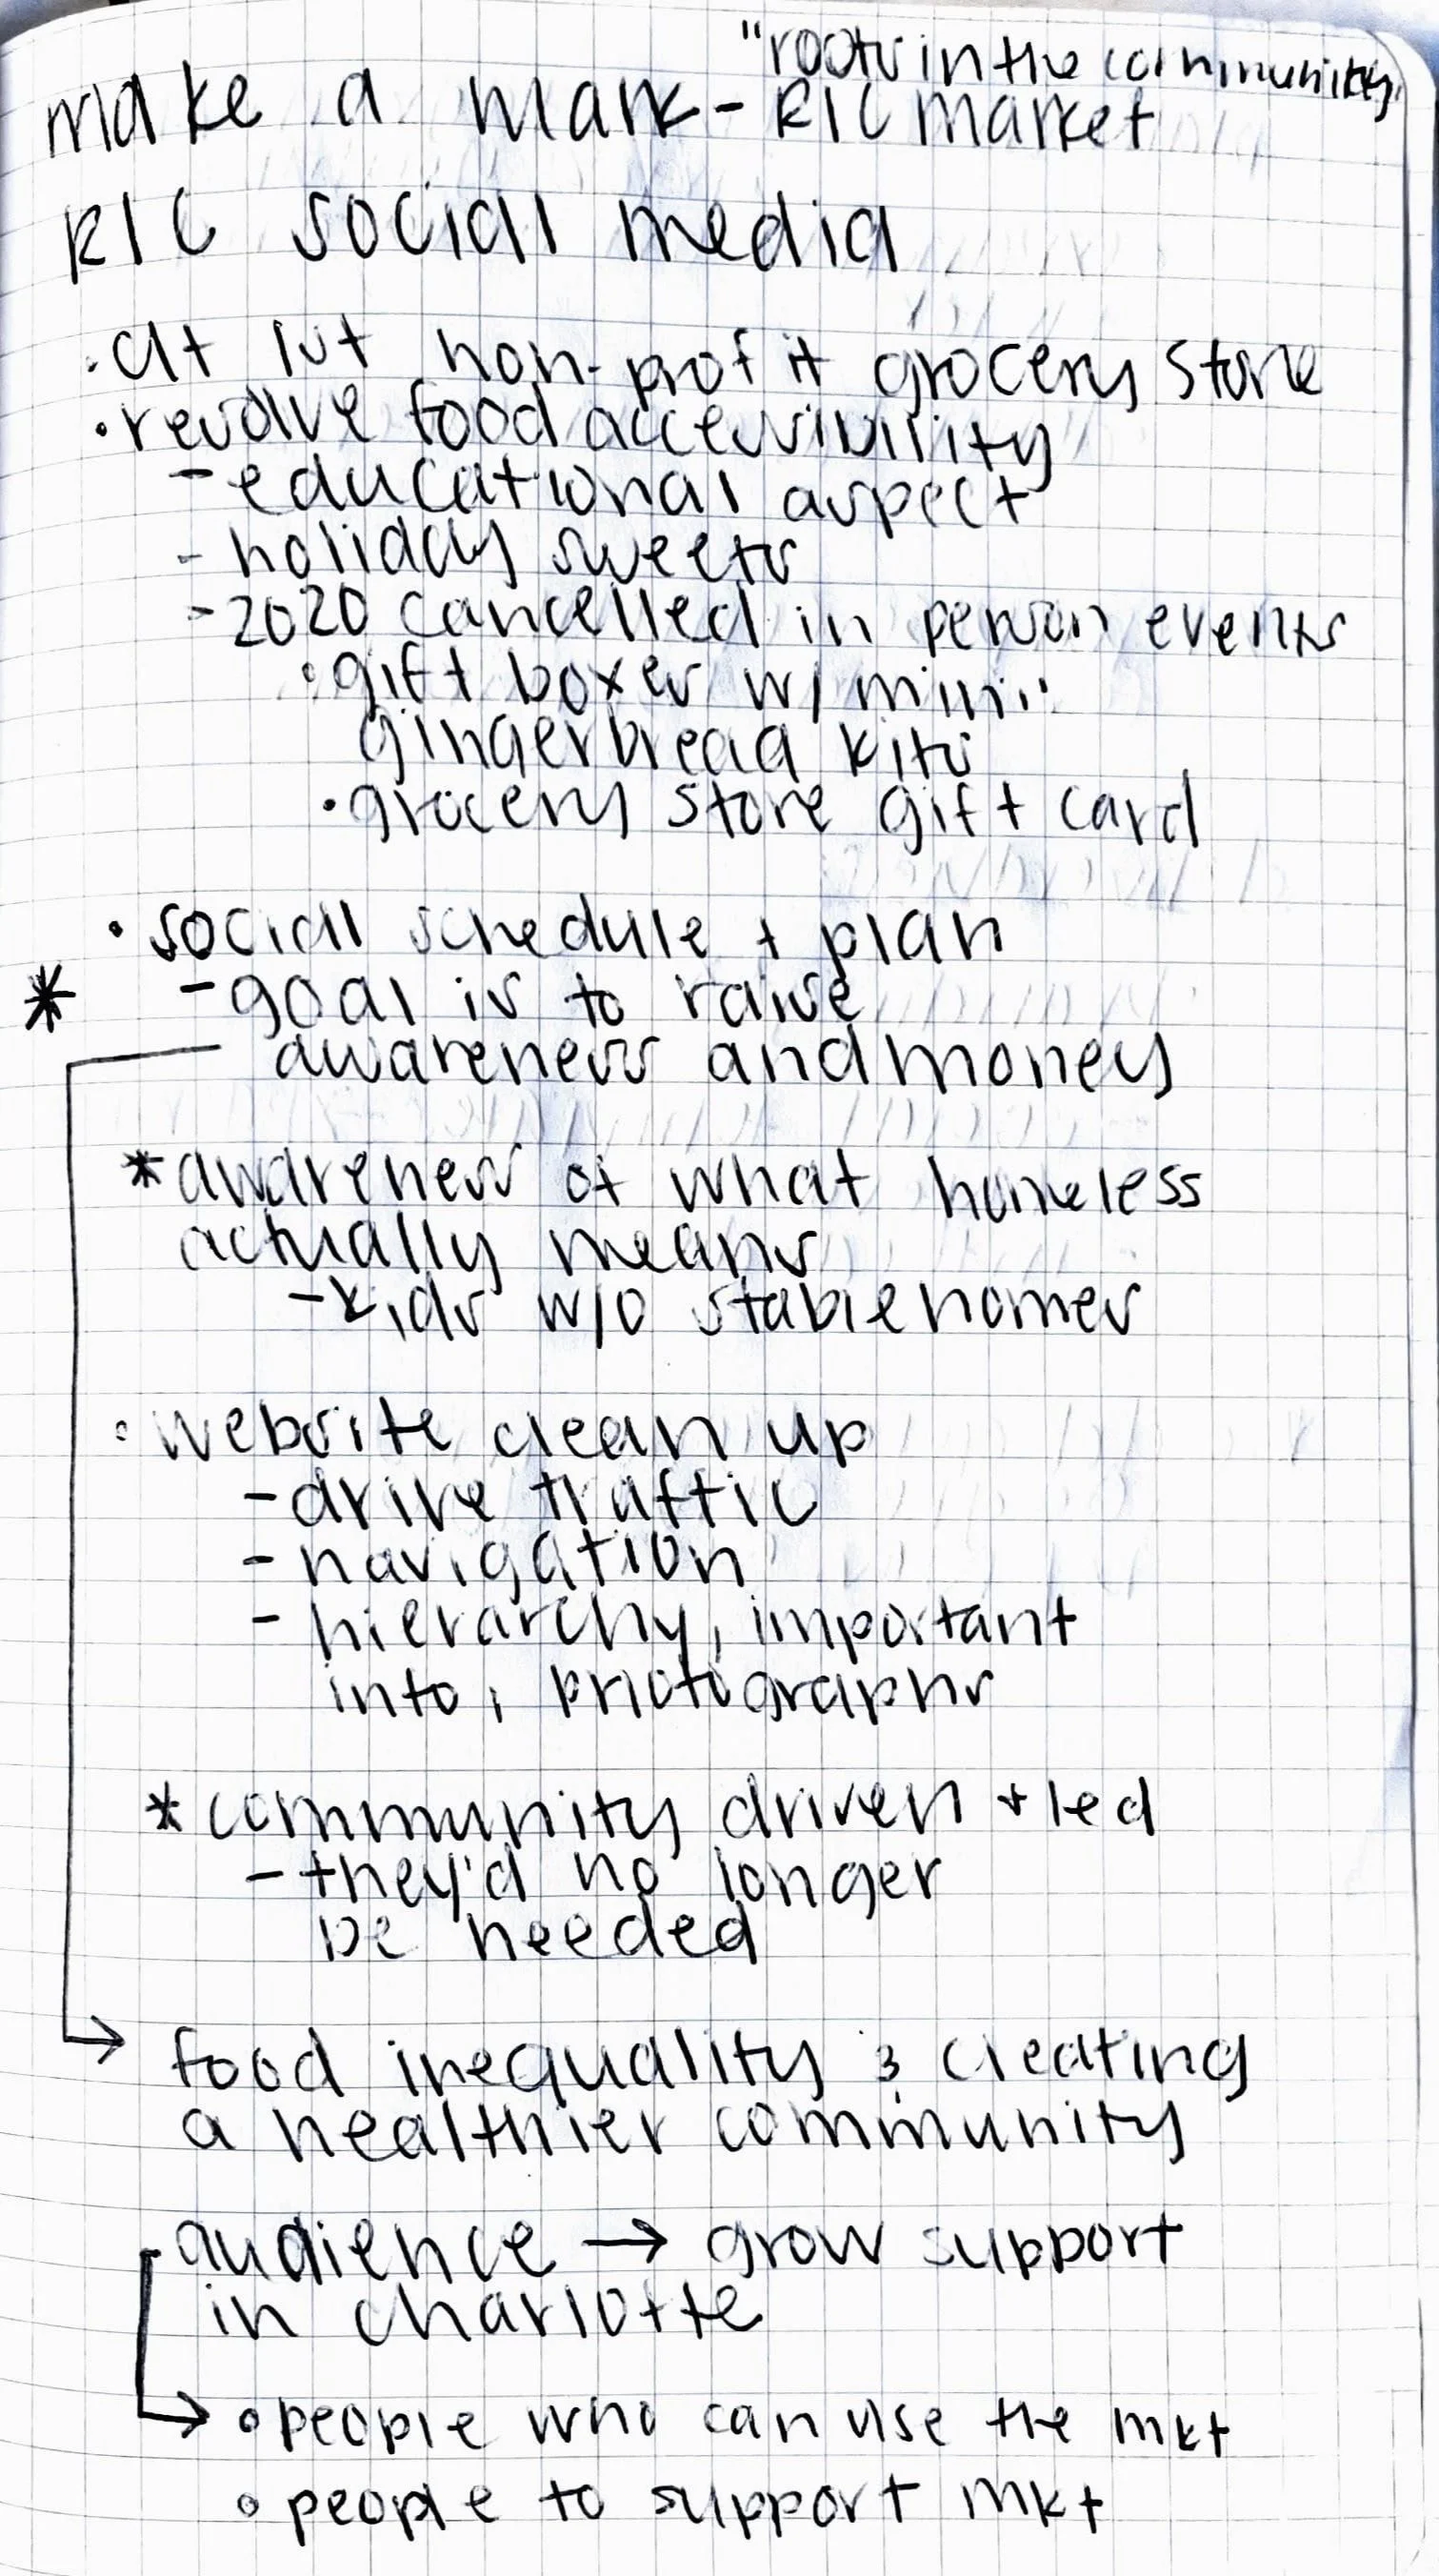 "roots in the community"
make a mark - RIC market
RIC social media
• clt 1st non-profit grocery store
• resolve food accessibility
- educational aspect
- holiday sweets
- 2020 cancelled in person events
• gift boxes w/ mini
gingerbread kits
• grocery store gift card
• social schedule + plan
* - goal is to raise
awareness and money
* awareness of what homeless
actually means
- kids w/o stable homes
• website clean up
- drive traffic
- navigation
- hierarchy, important
info, photographs
* community driven + led
- they'd no longer
be needed
→ food inequality & creating
a healthier community
audience → grow support
in charlotte
→ • people who can use the mkt
• people to support mkt